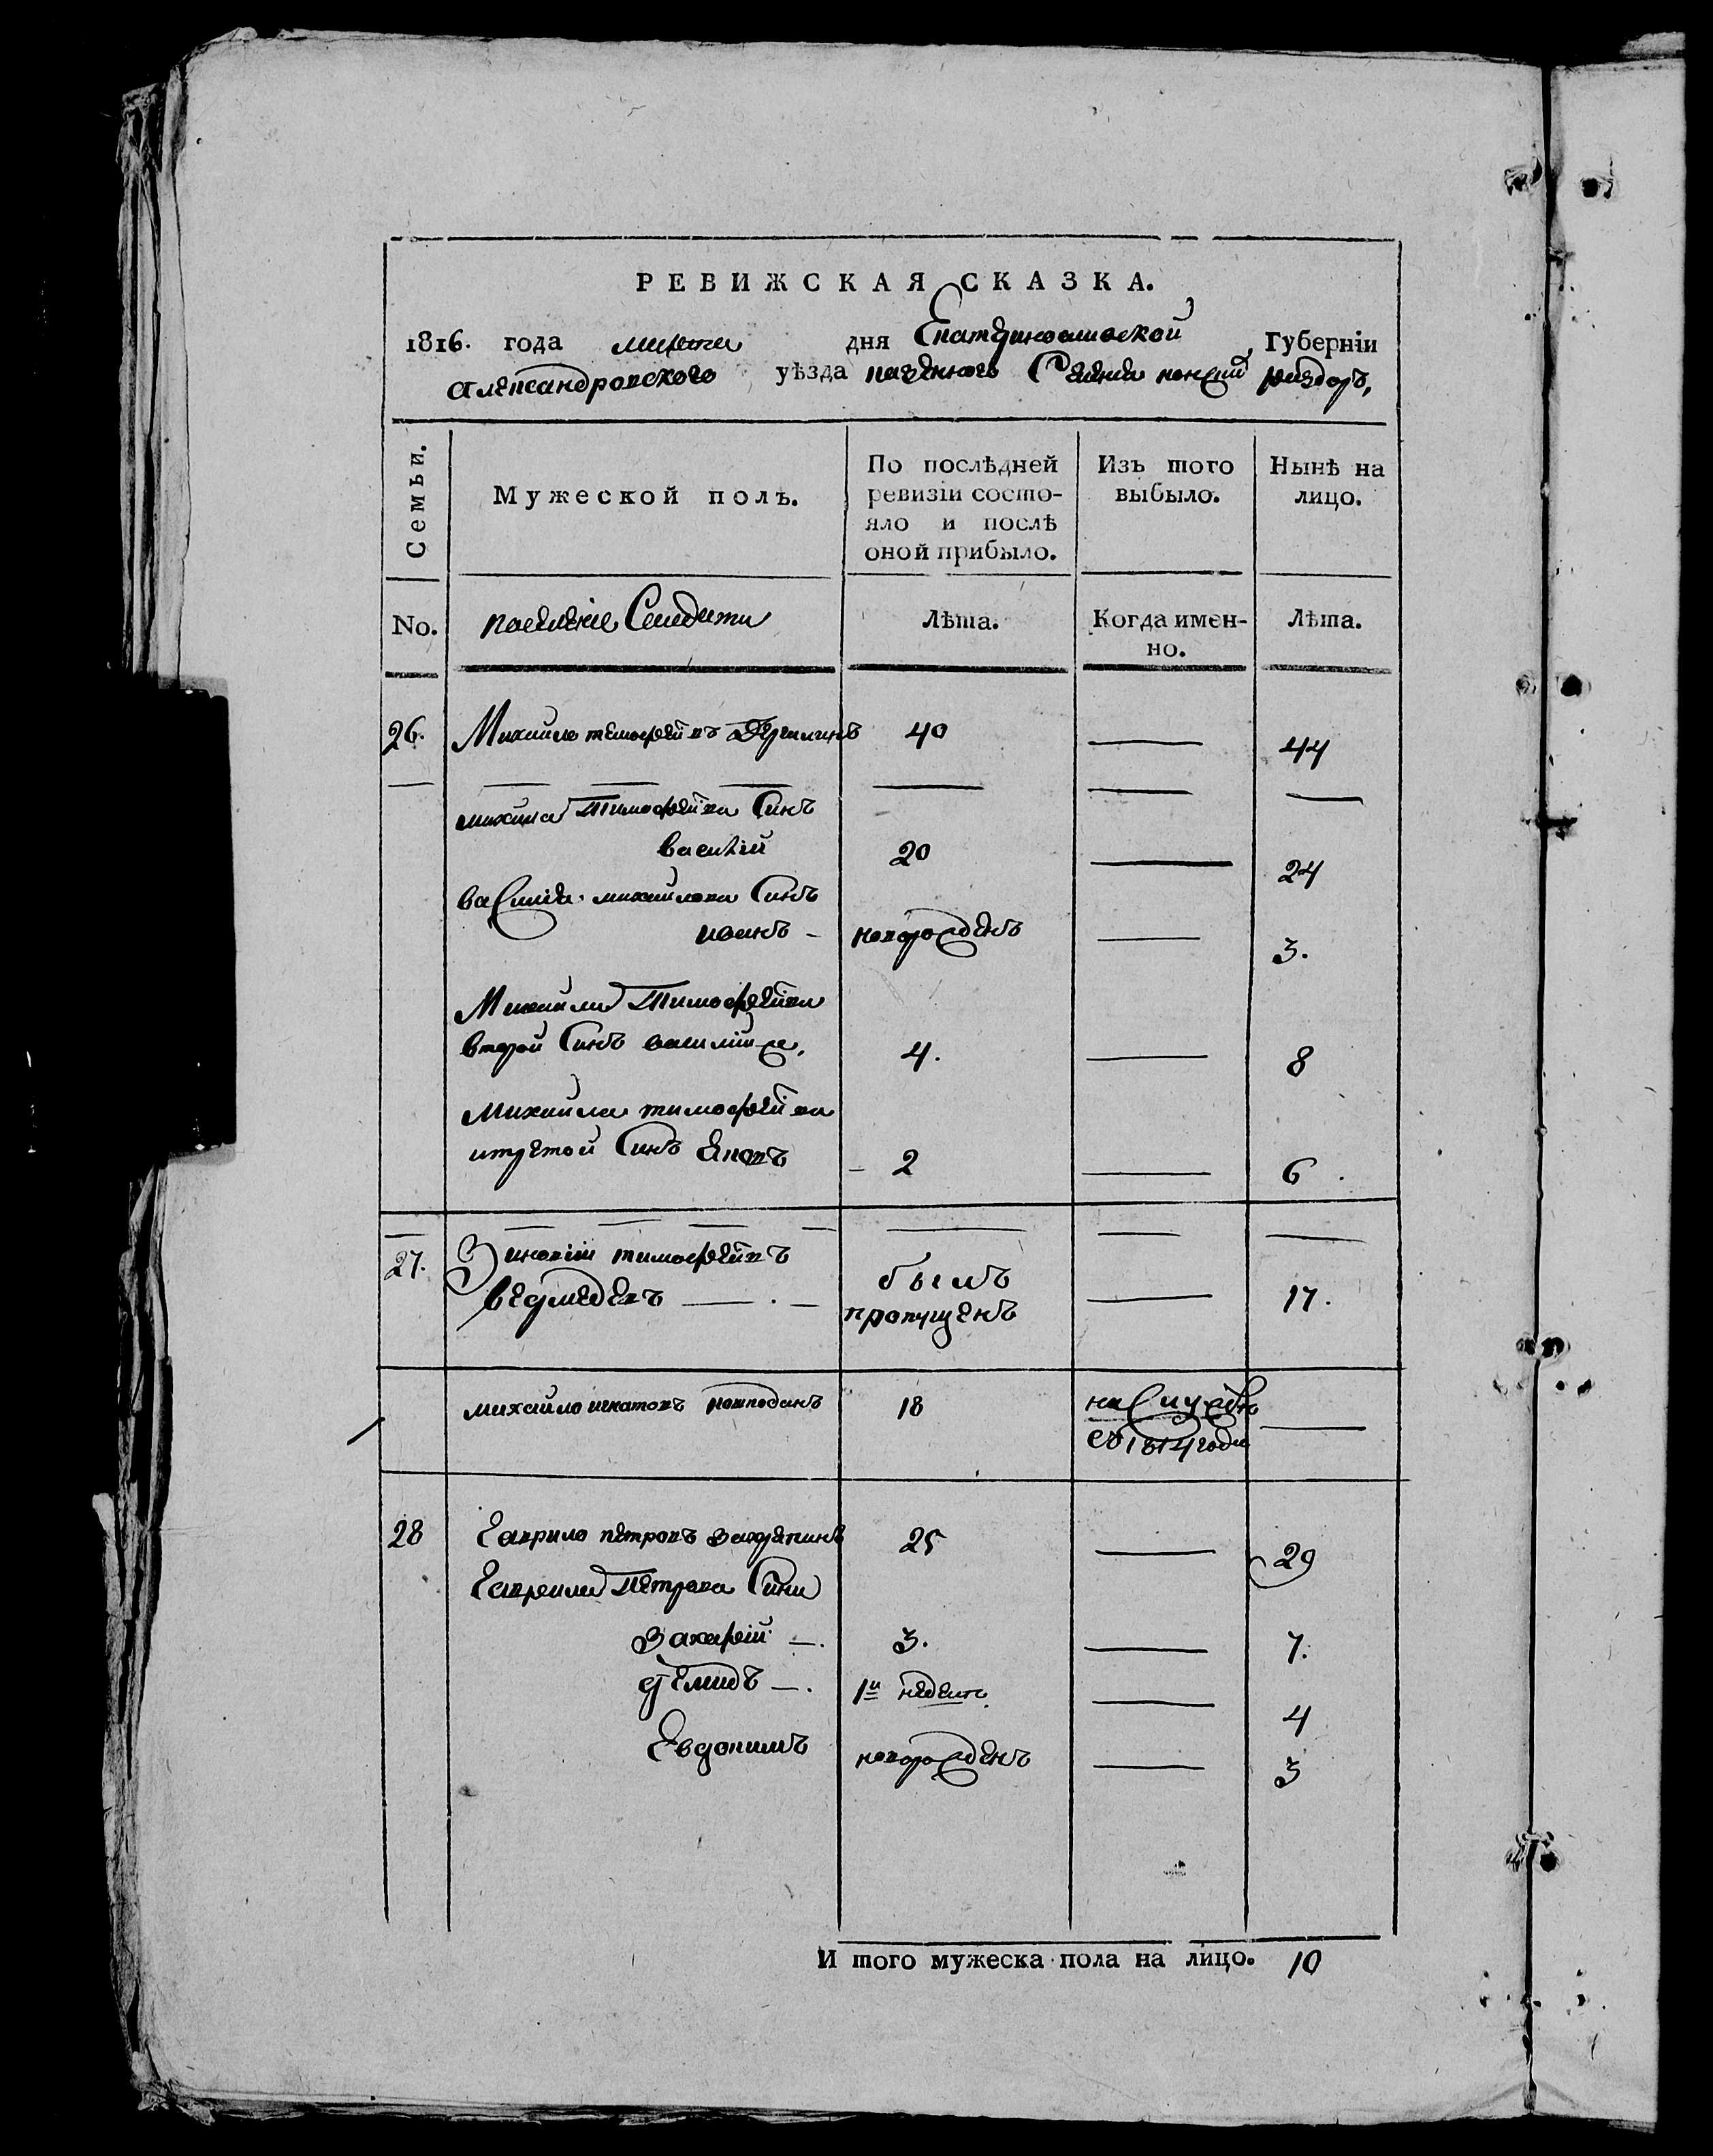 РЕВИЖСКАЯ СКАЗКА.
1816. года марта дня Екатеринославской Губерніи
Александровского уѣзда казенного Селенія конский раздоръ,
Семьи.
Мужеской полъ.
По послѣдней ревизіи состо-
яло и послѣ
оной прибыло.
Изъ того
выбыло.
Нынѣ на
лицо.
No.
Лѣта.
Когда имен-
но.
Лѣта.
26. Михайло тимофеивъ 40 44
михаила Тимофеива Синъ
василій 20 24
василія михайлова Синъ
иванъ новорожденъ 3.
Михаила Тимофеива
второй Синъ василий же, 4. 8
Михаила тимофеива
третой Синъ 2 6.
27. Зиновій тимофеивъ былъ
ведмедевъ пропущенъ 17.
михайло игнатовъ 18 на Службѣ
съ 1814 года
28 Гаврило петровъ 25 29
Гавреила Петрова Сини
Захарій 3. 7.
демидъ 1й недели 4
Евдокимъ новорожденъ 3
И того мужеска пола на лицо. 10